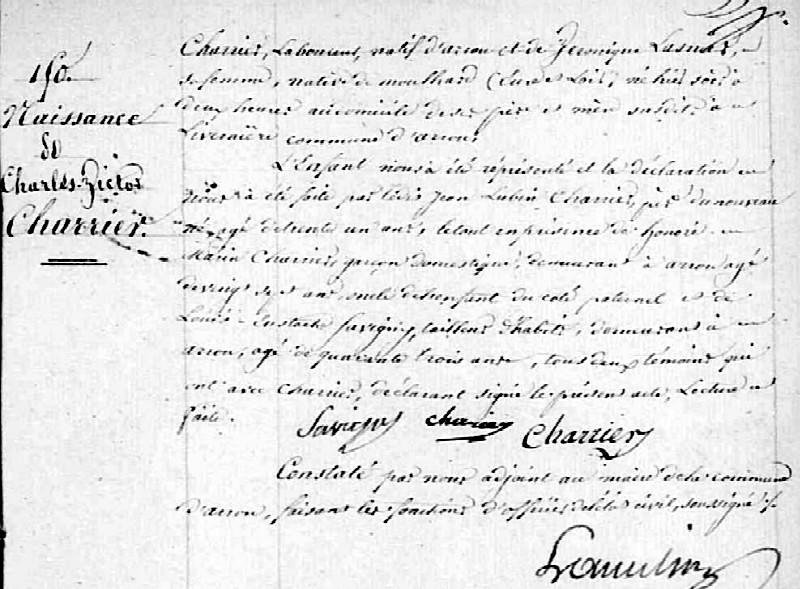 150.
Naissance
de
Charles-Victor
Charrier.
Charrier, Laboureur, natif d'arrou et de Véronique Lasnier,
sa femme, native de moulhard (Eure et Loir) né hier soir à
deux heures au domicile de ses père et mère susdits à
commune d'arrou.
L'Enfant nous a été représenté et la déclaration
nous a été faite par ledit Jean Lubin Charrier, père du nouveau
né, agé de trente un ans, le tout en présence de honoré
Marin Charrier, garçon domestique, demeurant à arrou agé
de vingt sept ans, oncle de l'enfant du coté paternel et de
Louis-Eustache Savigny, tailleur d'habits, demeurant à
arrou, agé de quarante trois ans, tous deux témoins qui
ont avec Charrier, déclarant signé le présent acte, Lecture
faite.
Savigny Charrier Charrier
Constaté par nous adjoint au maire de la commune
d'arrou, faisant les fonctions d'officier de l'état civil, soussigné